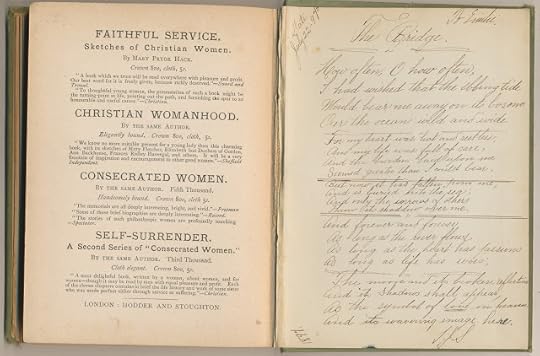 FAITHFUL SERVICE.
Sketches of Christian Women.
By Mary Pryor Hack.
Crown 8vo, cloth, 5s.
"A book which we trust will be read everywhere with pleasure and profit.
CHRISTIAN WOMANHOOD.
By the same Author.
Elegantly bound. Crown 8vo, cloth, 5s.
"We know no more suitable present for a young lady than this charming
book, with its sketches of Mary Fletcher, Elizabeth last Duchess of Gordon,
Ann Backhouse, Frances Ridley Havergal, and others. It will be a very
fountain of inspiration and encouragement to other good women."—Sheffield
Independent.
CONSECRATED WOMEN.
By the same Author. Fifth Thousand.
Handsomely bound. Crown 8vo, cloth 5s.
"The memorials are all deeply interesting, bright, and vivid."—Freeman
"Some of these brief biographies are deeply interesting."—Record.
"The stories of such philanthropic women are profoundly touching
—Spectator.
SELF-SURRENDER.
A Second Series of "Consecrated Women."
By the same Author. Third Thousand.
Cloth elegant. Crown 8vo, 5s.
"A most delightful book, written by a woman, about women, and for
women—though it may be read by men with equal pleasure and profit. Each
of the eleven chapters contains in brief the life history and work of some sister
who was made perfect either through service or suffering."—Christian.
LONDON: HODDER AND STOUGHTON.
The Bridge.
How often, O how often,
I had wished that the ebbing tide
Would bear me away on its bosom
O'er the ocean wild and wide
For my heart was hot and restless
And my life was full of care.
And the burden laid upon me
Seemed greater than I could bear.
But now it has fallen from me,
and is buried in the sea
And only the sorrow of others
And forever and forever
As long as the river flows
As long as the heart has passions
as long as life has woes;
The moon and its broken reflection
And its shadows shall appear,
As the symbol of love in heaven
And its wavering image here.